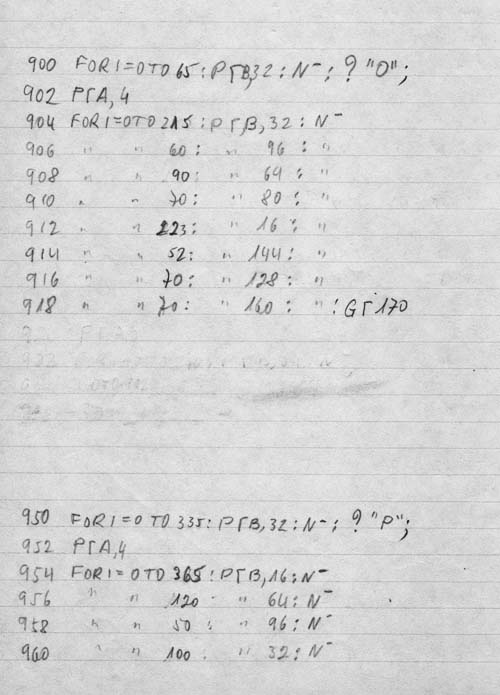 900 FOR I=0 TO 65: PΓB,32: N⁻: ? "O";
902 PΓA,4
904 FOR I=0 TO 215: PΓB,32: N⁻
906 " " 60: " 96: "
908 " " 90: " 64: "
910 " " 70: " 80: "
912 " " 223: " 16: "
914 " " 52: " 144: "
916 " " 70: " 128: "
918 " " 70: " 160: " : GΓ170
950 FOR I=0 TO 335: PΓB,32: N⁻: ? "P";
952 PΓA,4
954 FOR I=0 TO 365: PΓB,16: N⁻
956 " " 120 " 64: N⁻
958 " " 50: " 96: N⁻
960 " " 100. " 32: N⁻